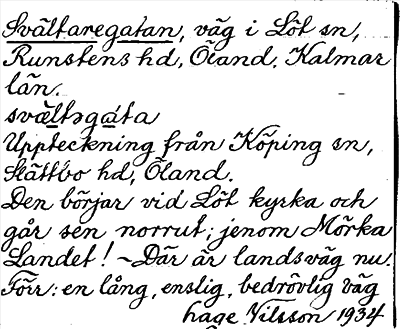 Svältaregatan, väg i Löt sn,
Runstens hd, Öland. Kalmar
län.
svältəgata
Uppteckning från Köping sn,
Slättbo hd, Öland.
Den börjar vid Löt kyrka och
går sen norrut; jenom Mörka
Landet! – Där är landsväg nu.
Förr: en lång, enslig, bedrövlig väg
hage Nilsson 1934